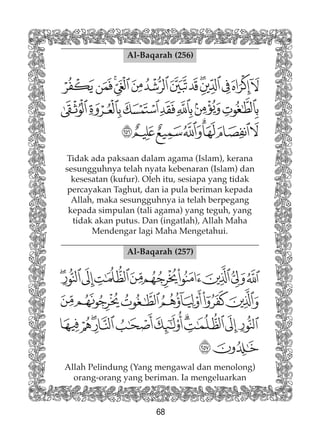 Al-Baqarah (256)
لَآ إِكْرَاهَ فِى ٱلدِّينِ ۖ قَد تَّبَيَّنَ ٱلرُّشْدُ مِنَ ٱلْغَىِّ ۚ فَمَن يَكْفُرْ
بِٱلطَّٰغُوتِ وَيُؤْمِنۢ بِٱللَّهِ فَقَدِ ٱسْتَمْسَكَ بِٱلْعُرْوَةِ ٱلْوُثْقَىٰ
لَا ٱنفِصَامَ لَهَا ۗ وَٱللَّهُ سَمِيعٌ عَلِيمٌ ٢٥٦
Tidak ada paksaan dalam agama (Islam), kerana
sesungguhnya telah nyata kebenaran (Islam) dan
kesesatan (kufur). Oleh itu, sesiapa yang tidak
percayakan Taghut, dan ia pula beriman kepada
Allah, maka sesungguhnya ia telah berpegang
kepada simpulan (tali agama) yang teguh, yang
tidak akan putus. Dan (ingatlah), Allah Maha
Mendengar lagi Maha Mengetahui.
Al-Baqarah (257)
ٱللَّهُ وَلِىُّ ٱلَّذِينَ ءَامَنُوا۟ يُخْرِجُهُم مِّنَ ٱلظُّلُمَٰتِ إِلَى ٱلنُّورِ ۖ
وَٱلَّذِينَ كَفَرُوٓا۟ أَوْلِيَآؤُهُمُ ٱلطَّٰغُوتُ يُخْرِجُونَهُم مِّنَ
ٱلنُّورِ إِلَى ٱلظُّلُمَٰتِ ۗ أُو۟لَٰٓئِكَ أَصْحَٰبُ ٱلنَّارِ ۖ هُمْ فِيهَا
خَٰلِدُونَ ٢٥٧
Allah Pelindung (Yang mengawal dan menolong)
orang-orang yang beriman. Ia mengeluarkan
68